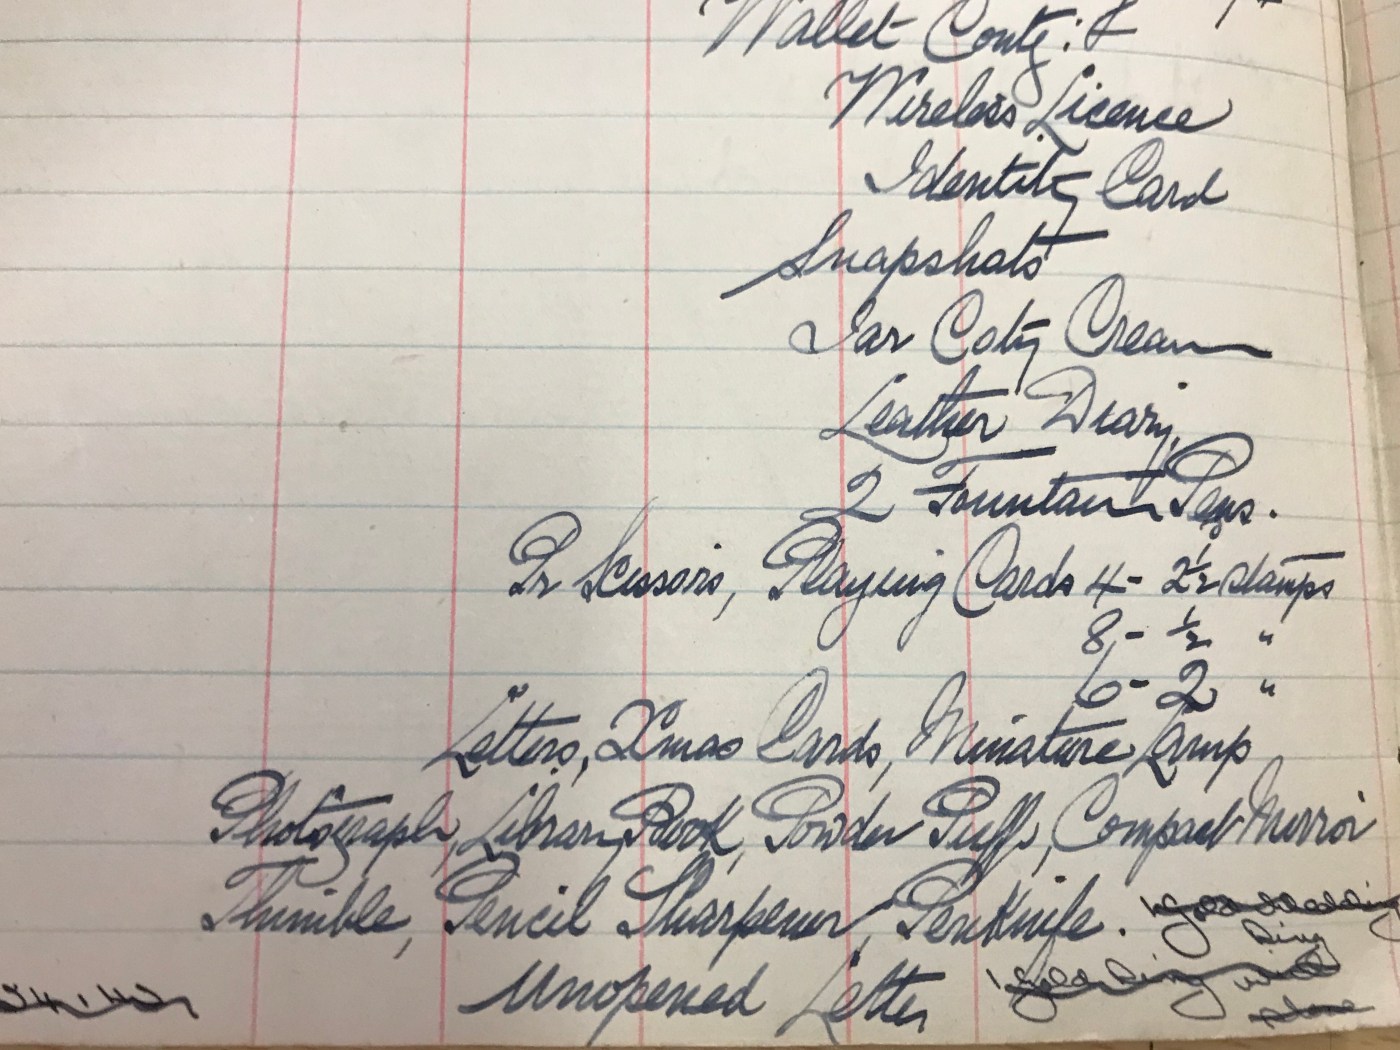 Wallet Contg: &
Wireless Licence
Identity Card
Snapshots
Jar Coty Cream
Leather Diary,
2 Fountain Pens.
Pr Scissors, Playing Cards 4 - 2½ stamps
8 - ½ "
6 - 2 "
Letters, Xmas Cards, Miniature Lamp
Photograph, Library Book, Powder Puffs, Compact Mirror
Thimble, Pencil Sharpener, Penknife. 1 Gold Wedding
Ring
Unopened Letter 1 Gold Ring with
stone